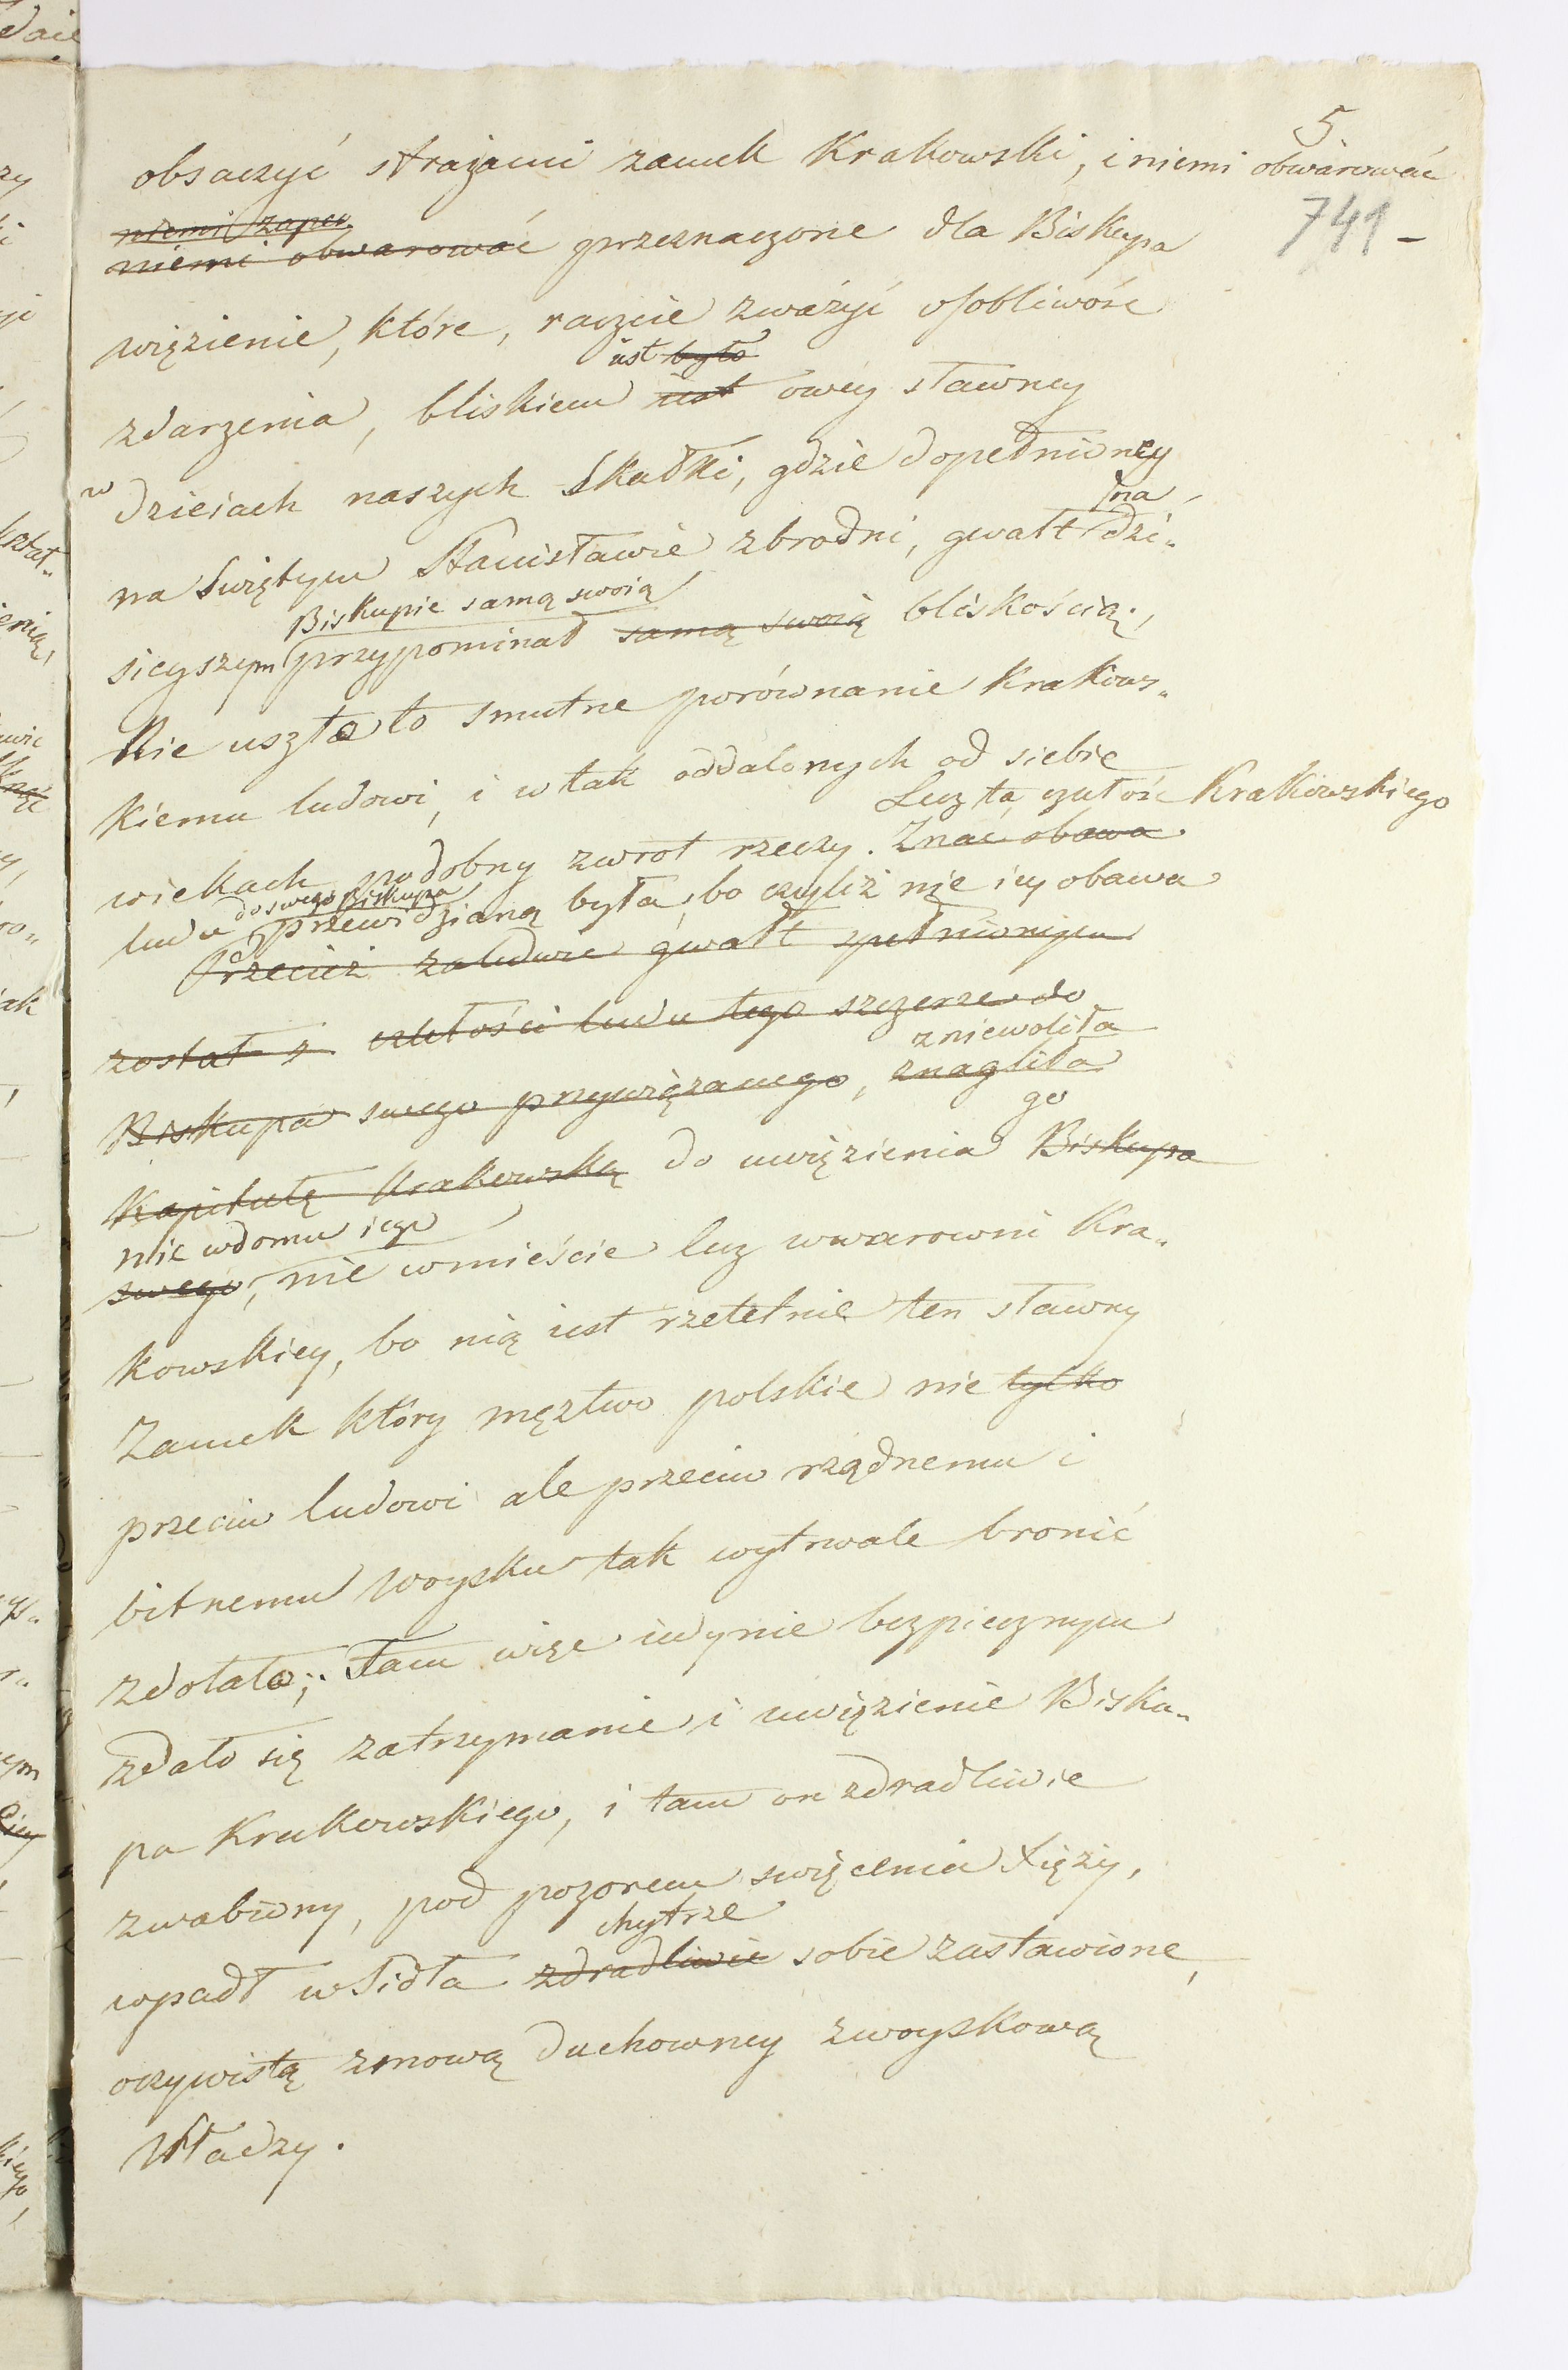 5
obsaczyć strażami zamek Krakowski, i niemi obwarować
741 -
niemi zapew
niemi obwarować przeznaczone dla Biskupa
więzienie, które, raczcie zważyć osobliwość
iest było
zdarzenia, bliskiem iest owey sławney
w dzieiach naszych Skałki, gdzie dopełnioney
na
na Swiętym Stanisławie zbrodni, gwałt dzi-
Biskupie samą swoią
sieyszym przypominał samą swoią bliskością.
Nie uszło to smutne porównanie Krakows-
kiemu ludowi, i w tak oddalonych od siebie
Lecz ta czułość Krakowskiego
wiekach podobny zwrot rzeczy. Znać obawa
do swego Biskupa
ludu przewidzianą była, bo czyliż nie iey obawa
Przecież zaledwie gwałt spełnionym
został z czułości ludu tego szczerze do
zniewoliła
Biskupa swego przywiązanego, znagliła
go
Kapitułę Krakowską do uwięzienia Biskupa
nie w domu iego
swego, nie w mieście lecz w warowni Kra-
kowskiey, bo nią iest rzetelnie ten sławny
Zamek który męztwo polskie nie tylko
przeciw ludowi ale przeciw rządnemu i
bitnemu woysku tak wytrwale bronić
zdołało; Tam więc iedynie bezpiecznym
zdało się zatrzymanie i uwięzienie Bisku-
pa Krakowskiego, i tam on zdradliwie
zwabiony, pod pozorem święcenia Xięży,
chytrze
wpadł w sidła zdradliwie sobie zastawione,
oczywistą zmową duchowney z woyskową
Władzy.